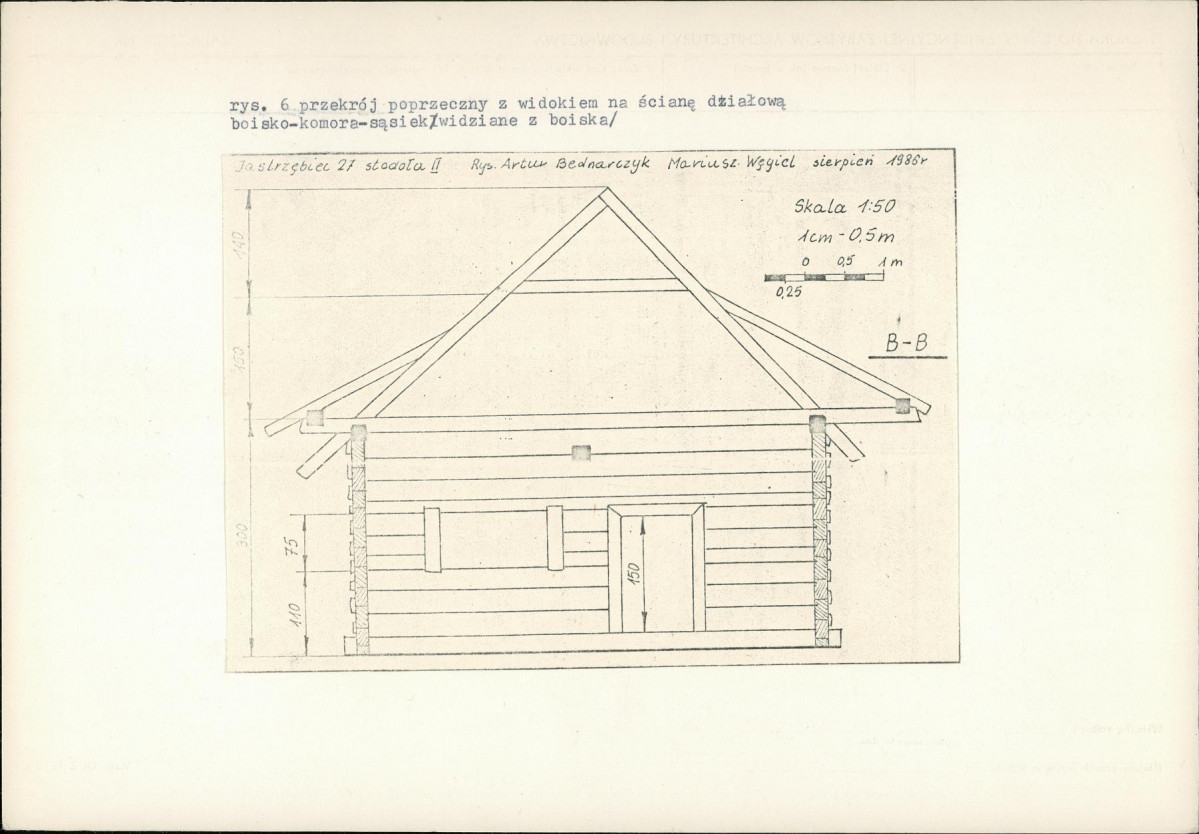 rys. 6 przekrój poprzeczny z widokiem na ścianę działową
boisko-komora-sąsiek/widziane z boiska/
Jastrzębiec 27 stodoła II Rys. Artur Bednarczyk Mariusz Węgiel sierpień 1986r
Skala 1:50
1cm - 0,5m
0 0,5 1m
0,25
B-B
140
160
300
75
110
150